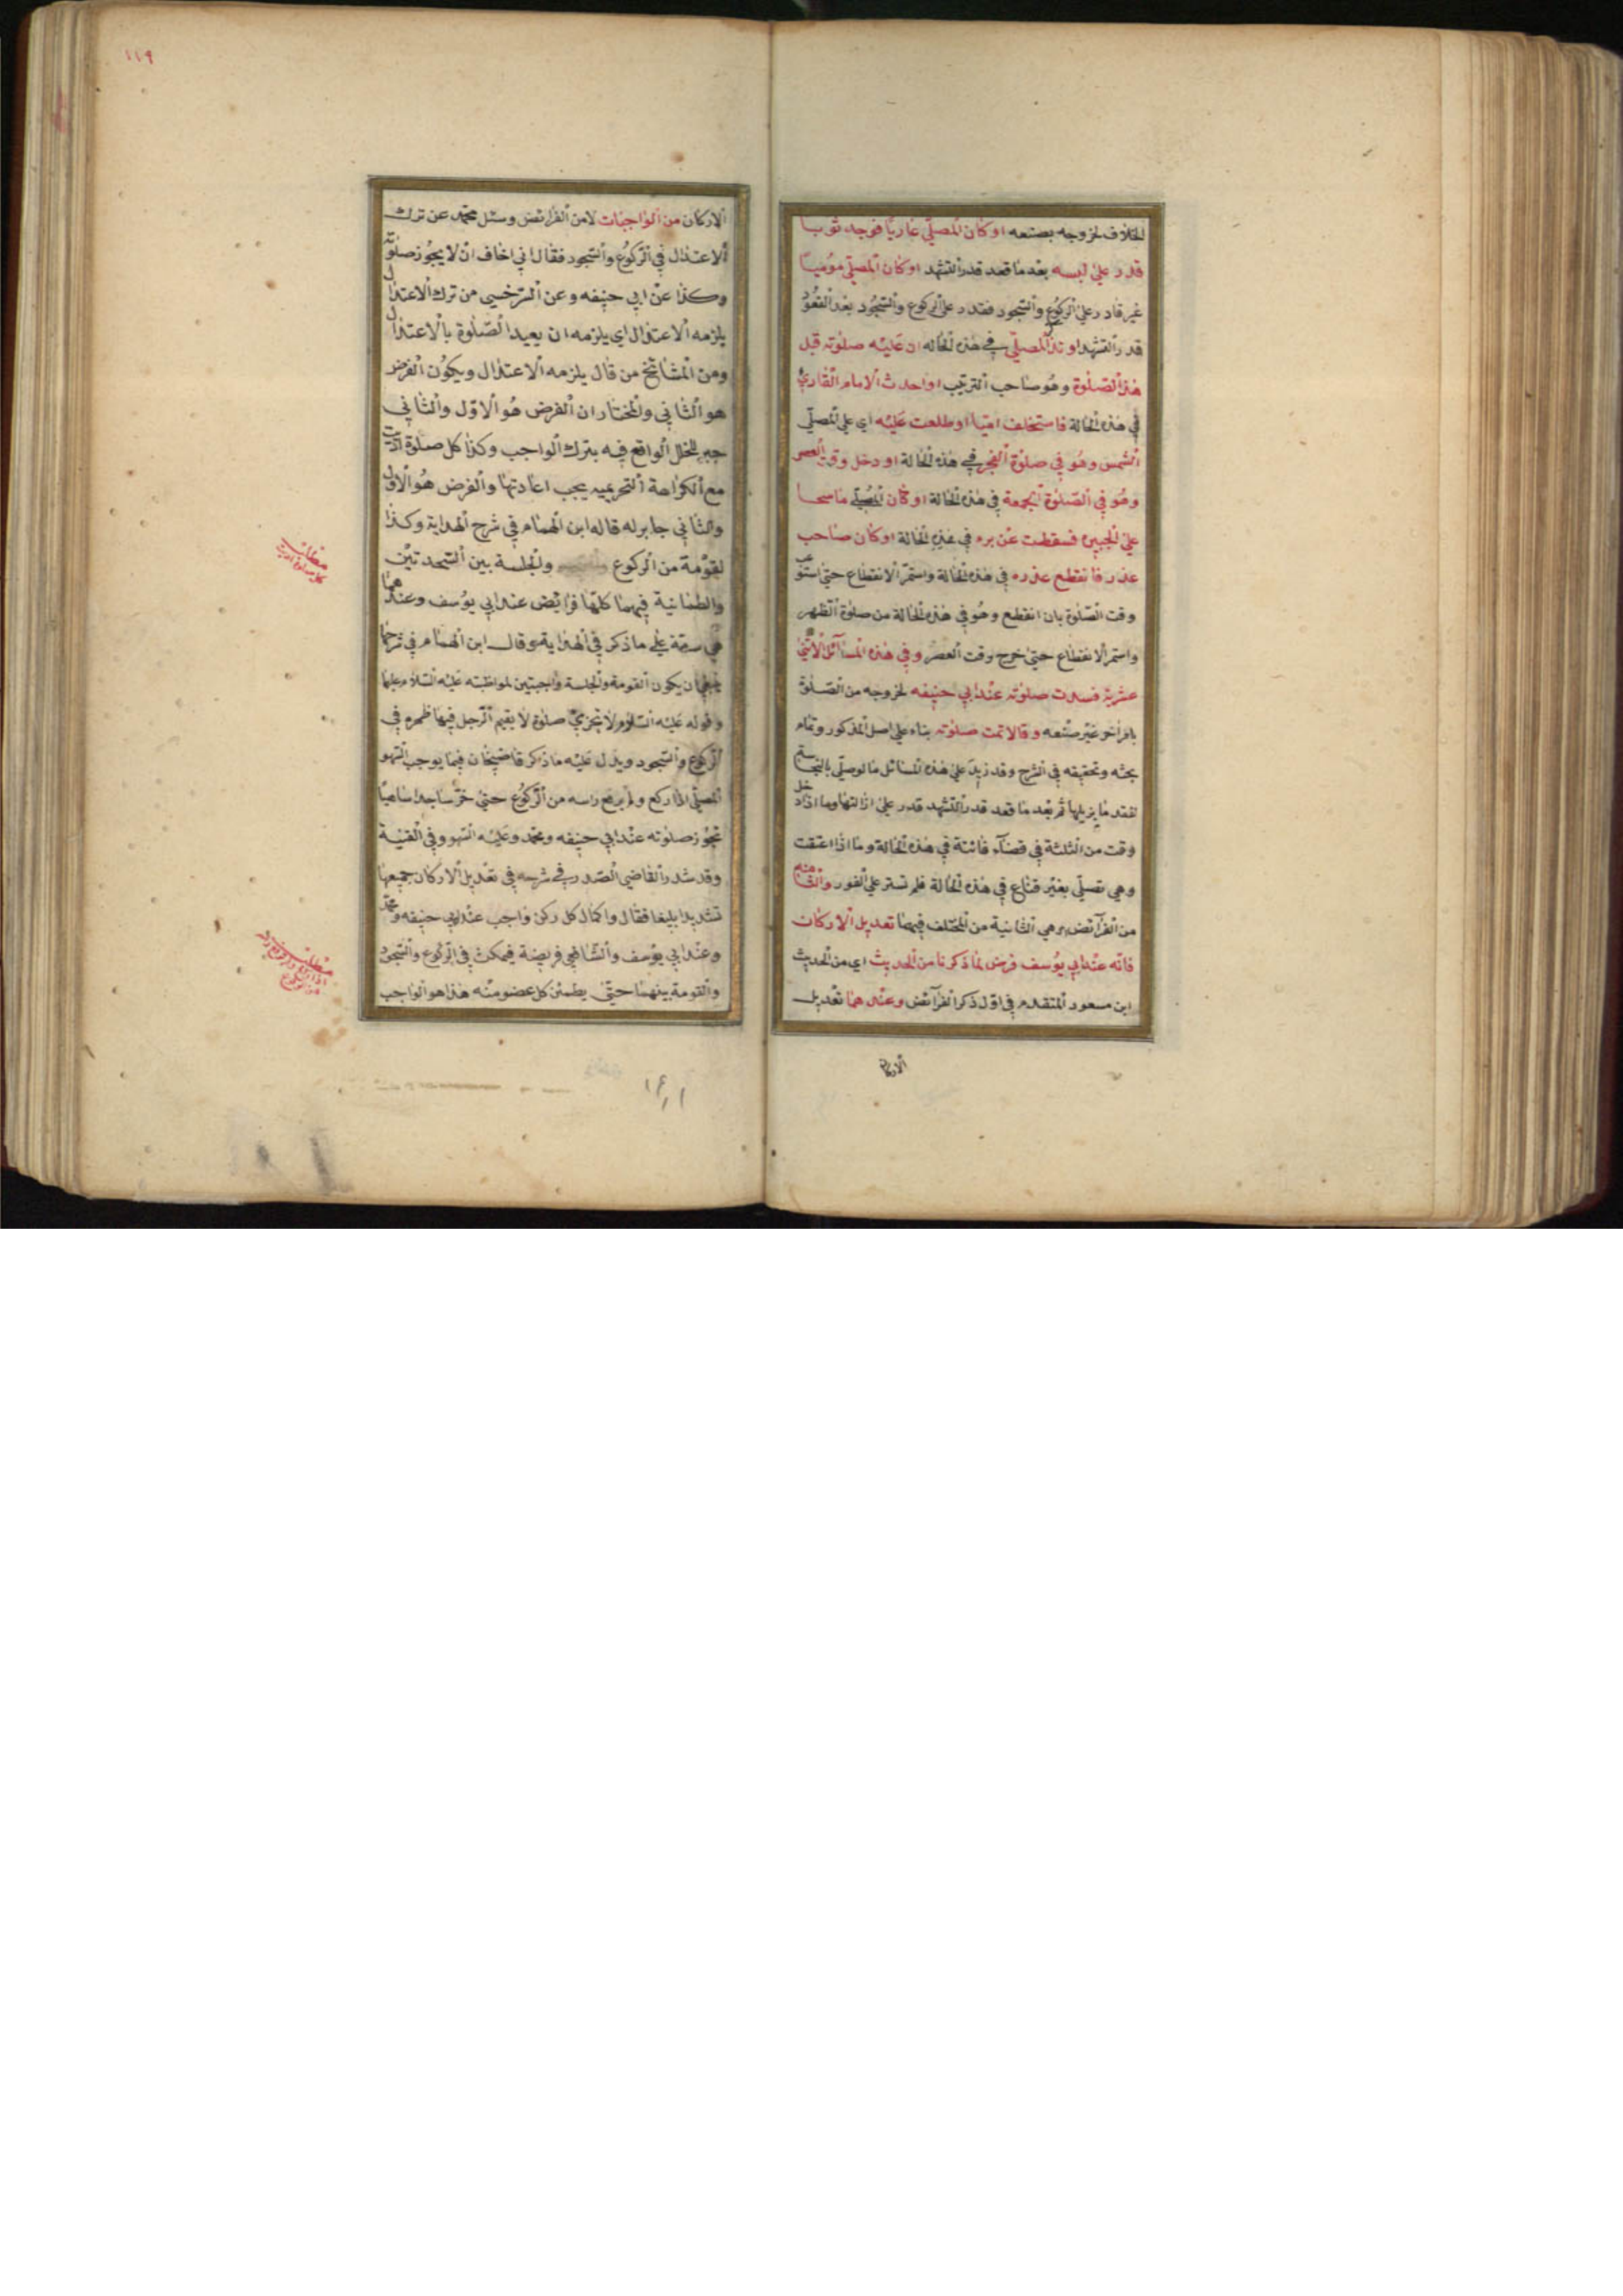 الخلاف لخروجه بصنعه او كان المصلي عاريا فوجد ثوبا
قدر على لبسه بعد ما قعد قدر التشهد او كان المصلي موميا
غير قادر على الركوع والسجود فقدر على الركوع والسجود بعد القعود
قدر التشهد او تذكر المصلي في هذه الحالة ان عليه صلوته قبل
هذه الصلوة وهو صاحب الترتيب او احدث الامام القارئ
في هذه الحالة فاستخلف اميا او طلعت عليه اي على المصلي
الشمس وهو في صلوة الفجر في هذه الحالة او دخل وقت العصر
وهو في الصلوة الجمعة في هذه الحالة او كان المصلي ماسحا
على الجبيرة فسقطت عن برء في هذه الحالة او كان صاحب
عذر فانقطع عذره في هذه الحالة واستمر الانقطاع حتى استوعب
وقت الصلوة بان انقطع وهو في هذه الحالة من صلوة الظهر
واستمر الانقطاع حتى خرج وقت العصر وفي هذه المسائل الاثني
عشرية فسدت صلوته عند ابي حنيفه لخروجه من الصلوة
بامر اخر غير صنعه وقالا تمت صلوته بناء على اصل المذكور وتمام
بحثه وتحقيقه في الشرح وقد زيد على هذه المسائل ما لو صلى بالنجاسة
لفقد ما يزيلها ثم بعد ما قعد قدر التشهد قدر على ازالتها وما اذا دخل
وقت من الثلثة في قضاء فائتة في هذه الحالة وما اذا اعتقت
وهي تصلي بغير قناع في هذه الحالة فلم تستر على الفور والثامنه
من الفرائض وهي الثانية من المختلف فيهما تعديل الاركان
فانه عند ابي يوسف فرض لما ذكرنا من الحديث اي من الحديث
ابن مسعود المتقدم في اول ذكر الفرائض وعندهما تعديل
الاركان
١١٩
الاركان من الواجبات لا من الفرائض وسئل محمد عن ترك
الاعتدال في الركوع والسجود فقال اني اخاف ان لا يجوز صلوته
وكذا عن ابي حنيفه وعن السرخسي من ترك الاعتدال
يلزمه الاعتدال اي يلزمه ان يعيد الصلوة بالاعتدال
ومن المشائخ من قال يلزمه الاعتدال ويكون الفرض
هو الثاني والمختار ان الفرض هو الاول والثاني
جبر للخلل الواقع فيه بترك الواجب وكذا كل صلوة اديت
مع الكراهة التحريميه يجب اعادتها والفرض هو الاول
والثاني جابر له قاله ابن الهمام في شرح الهداية وكذا
لقومة من الركوع والجلسة بين السجدتين
والطمانية فيهما كلها فرائض عند ابي يوسف وعندهما
هي سنة على ما ذكر في الهداية وقال ابن الهمام في شرحها
ينبغي ان يكون القومة والجلسة واجبتين لمواظبته عليه السلام عليها
وقوله عليه السلام لا تجزئ صلوة لا يقيم الرجل فيها ظهره في
الركوع والسجود ويدل عليه ما ذكر قاضيخان فيما يوجب السهو
المصلي اذا ركع ولم يرفع راسه من الركوع حتى خر ساجدا ساهيا
تجوز صلوته عند ابي حنيفه ومحمد وعليه السهو وفي القنية
وقد شدد القاضي الصدر في شرحه في تعديل الاركان جميعها
تشديدا بليغا فقال واكمال كل ركن واجب عند ابي حنيفه ومحمد
وعند ابي يوسف والشافعي فريضة فيمكث في الركوع والسجود
والقومة بينهما حتى يطمئن كل عضو منه هذا هو الواجب
مطلب
كل صلوة اديت
مطلب